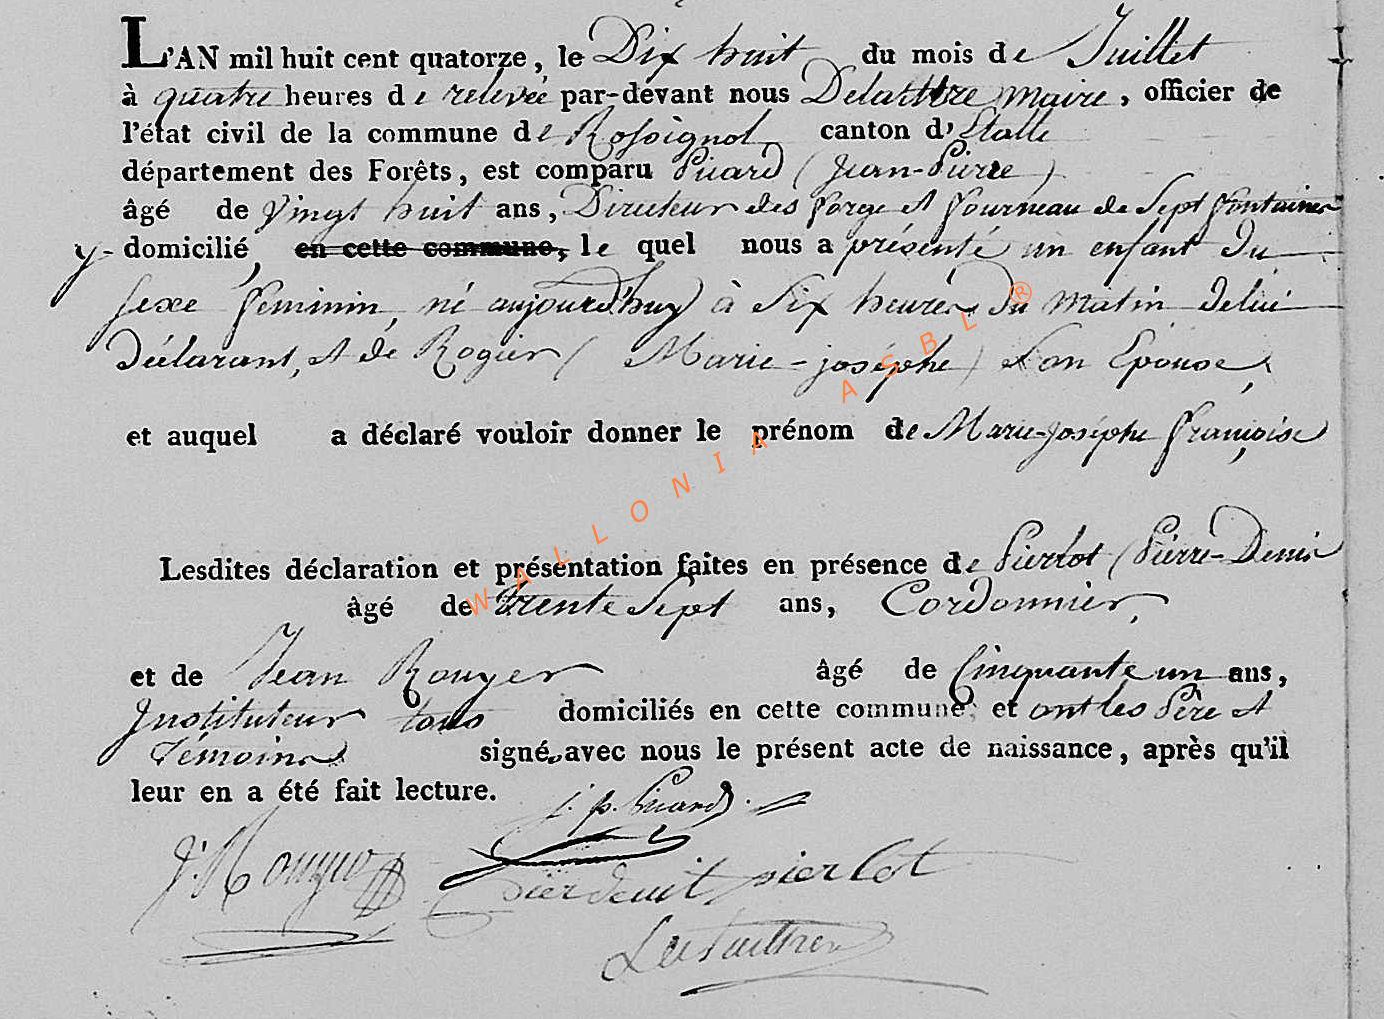 L'AN mil huit cent quatorze, le Dix huit du mois de Juillet
à quatre heures de relevée par-devant nous maire, officier de
l'état civil de la commune de Rossignol canton d'Etalle
département des Forêts, est comparu Picard (Jean-Pierre)
âgé de vingt huit ans, Directeur des forge et fourneau de Sept fontaines
y- domicilié, en cette commune, le quel nous a présenté un enfant du
sexe feminin, né aujourd'huy à Six heures du matin de lui
Déclarant, et de Rogier (Marie-josephe) Son Epouse,
et auquel a déclaré vouloir donner le prénom de Marie-Josephe françoise
Lesdites déclaration et présentation faites en présence de Pierlot (Pierre-Denis
âgé de trente Sept ans, Cordonnier,
et de Jean Rouyer âgé de Cinquante un ans,
Instituteur tous domiciliés en cette commune; et ont les Père et
Témoins signé avec nous le présent acte de naissance, après qu'il
leur en a été fait lecture.
j. p. Picard
J. Rouyer
pierlot
WALLONIA ASBL ®